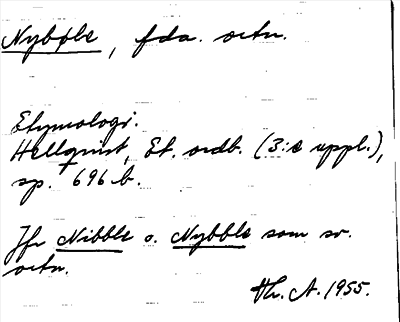 Nybøle, fda. ortn.
Etymologi.
Hellquist, Et. ordb. (3:e uppl.),
sp. 696 b.
Jfr Nibble o. Nybble som sv.
ortn.
Th. A. 1955.